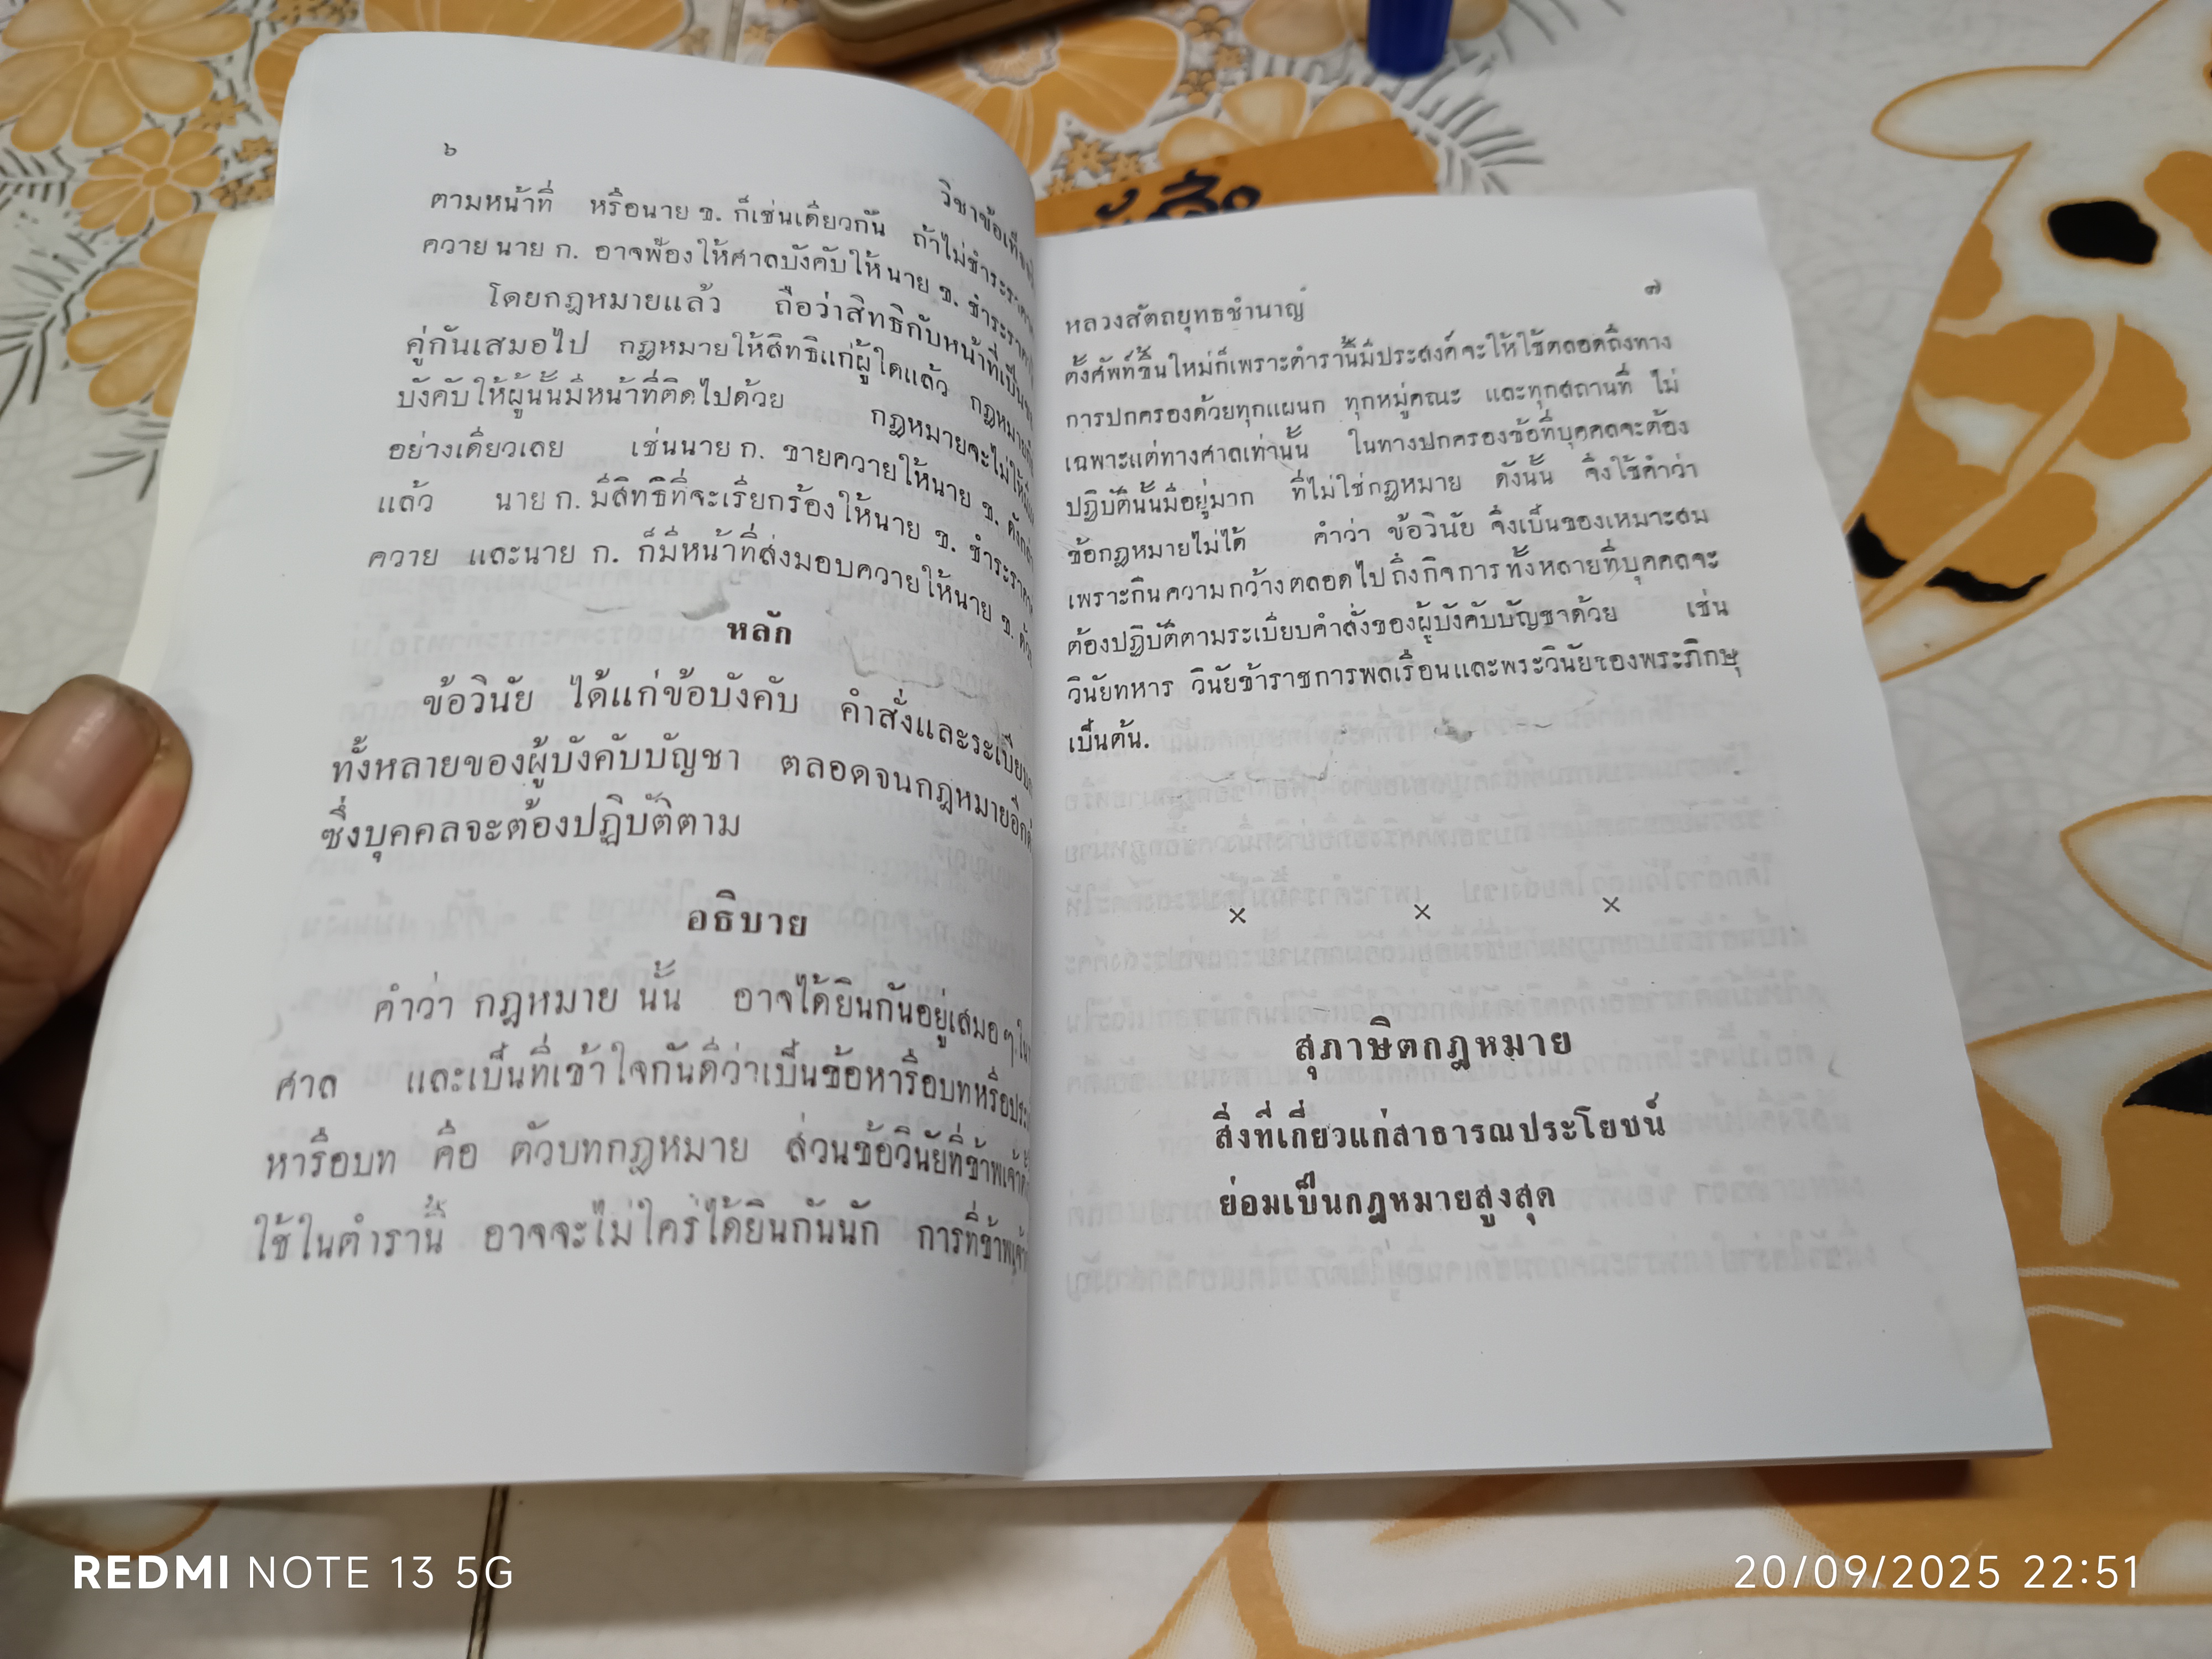 ๖
วิชาข้อเท็จ
ตามหน้าที่ หรือนาย ข. ก็เช่นเดียวกัน ถ้าไม่ชำระราคา
ควาย นาย ก. อาจฟ้องให้ศาลบังคับให้นาย ข. ชำระราคา
โดยกฎหมายแล้ว ถือว่าสิทธิกับหน้าที่เป็น
คู่กันเสมอไป กฎหมายให้สิทธิแก่ผู้ใดแล้ว กฎหมาย
บังคับให้ผู้นั้นมีหน้าที่ติดไปด้วย กฎหมายจะไม่ให้
อย่างเดียวเลย เช่นนาย ก. ขายควายให้นาย ข. ดัง
แล้ว นาย ก. มีสิทธิที่จะเรียกร้องให้นาย ข. ชำระราคา
ควาย และนาย ก. ก็มีหน้าที่ส่งมอบควายให้นาย ข. ด้วย
หลัก
ข้อวินัย ได้แก่ข้อบังคับ คำสั่งและระเบียบ
ทั้งหลายของผู้บังคับบัญชา ตลอดจนกฎหมายอีก
ซึ่งบุคคลจะต้องปฏิบัติตาม
อธิบาย
คำว่า กฎหมาย นั้น อาจได้ยินกันอยู่เสมอๆ ใน
ศาล และเป็นที่เข้าใจกันดีว่าเป็นข้อหารือบทหรือ
หารือบท คือ ตัวบทกฎหมาย ส่วนข้อวินัยที่ข้าพเจ้า
ใช้ในตำรานี้ อาจจะไม่ใคร่ได้ยินกันนัก การที่ข้าพเจ้า
หลวงสัตถยุทธชำนาญ ๗
ตั้งศัพท์ขึ้นใหม่ก็เพราะตำรานี้มีประสงค์จะให้ใช้ตลอดถึงทาง
การปกครองด้วยทุกแผนก ทุกหมู่คณะ และทุกสถานที่ ไม่
เฉพาะแต่ทางศาลเท่านั้น ในทางปกครองข้อที่บุคคลจะต้อง
ปฏิบัตินั้นมีอยู่มาก ที่ไม่ใช่กฎหมาย ดังนั้น จึงใช้คำว่า
ข้อกฎหมายไม่ได้ คำว่า ข้อวินัย จึงเป็นของเหมาะสม
เพราะกินความกว้างตลอดไปถึงกิจการทั้งหลายที่บุคคลจะ
ต้องปฏิบัติตามระเบียบคำสั่งของผู้บังคับบัญชาด้วย เช่น
วินัยทหาร วินัยข้าราชการพลเรือนและพระวินัยของพระภิกษุ
เป็นต้น.
× × ×
สุภาษิตกฎหมาย
สิ่งที่เกี่ยวแก่สาธารณประโยชน์
ย่อมเป็นกฎหมายสูงสุด
REDMI NOTE 13 5G
20/09/2025 22:51